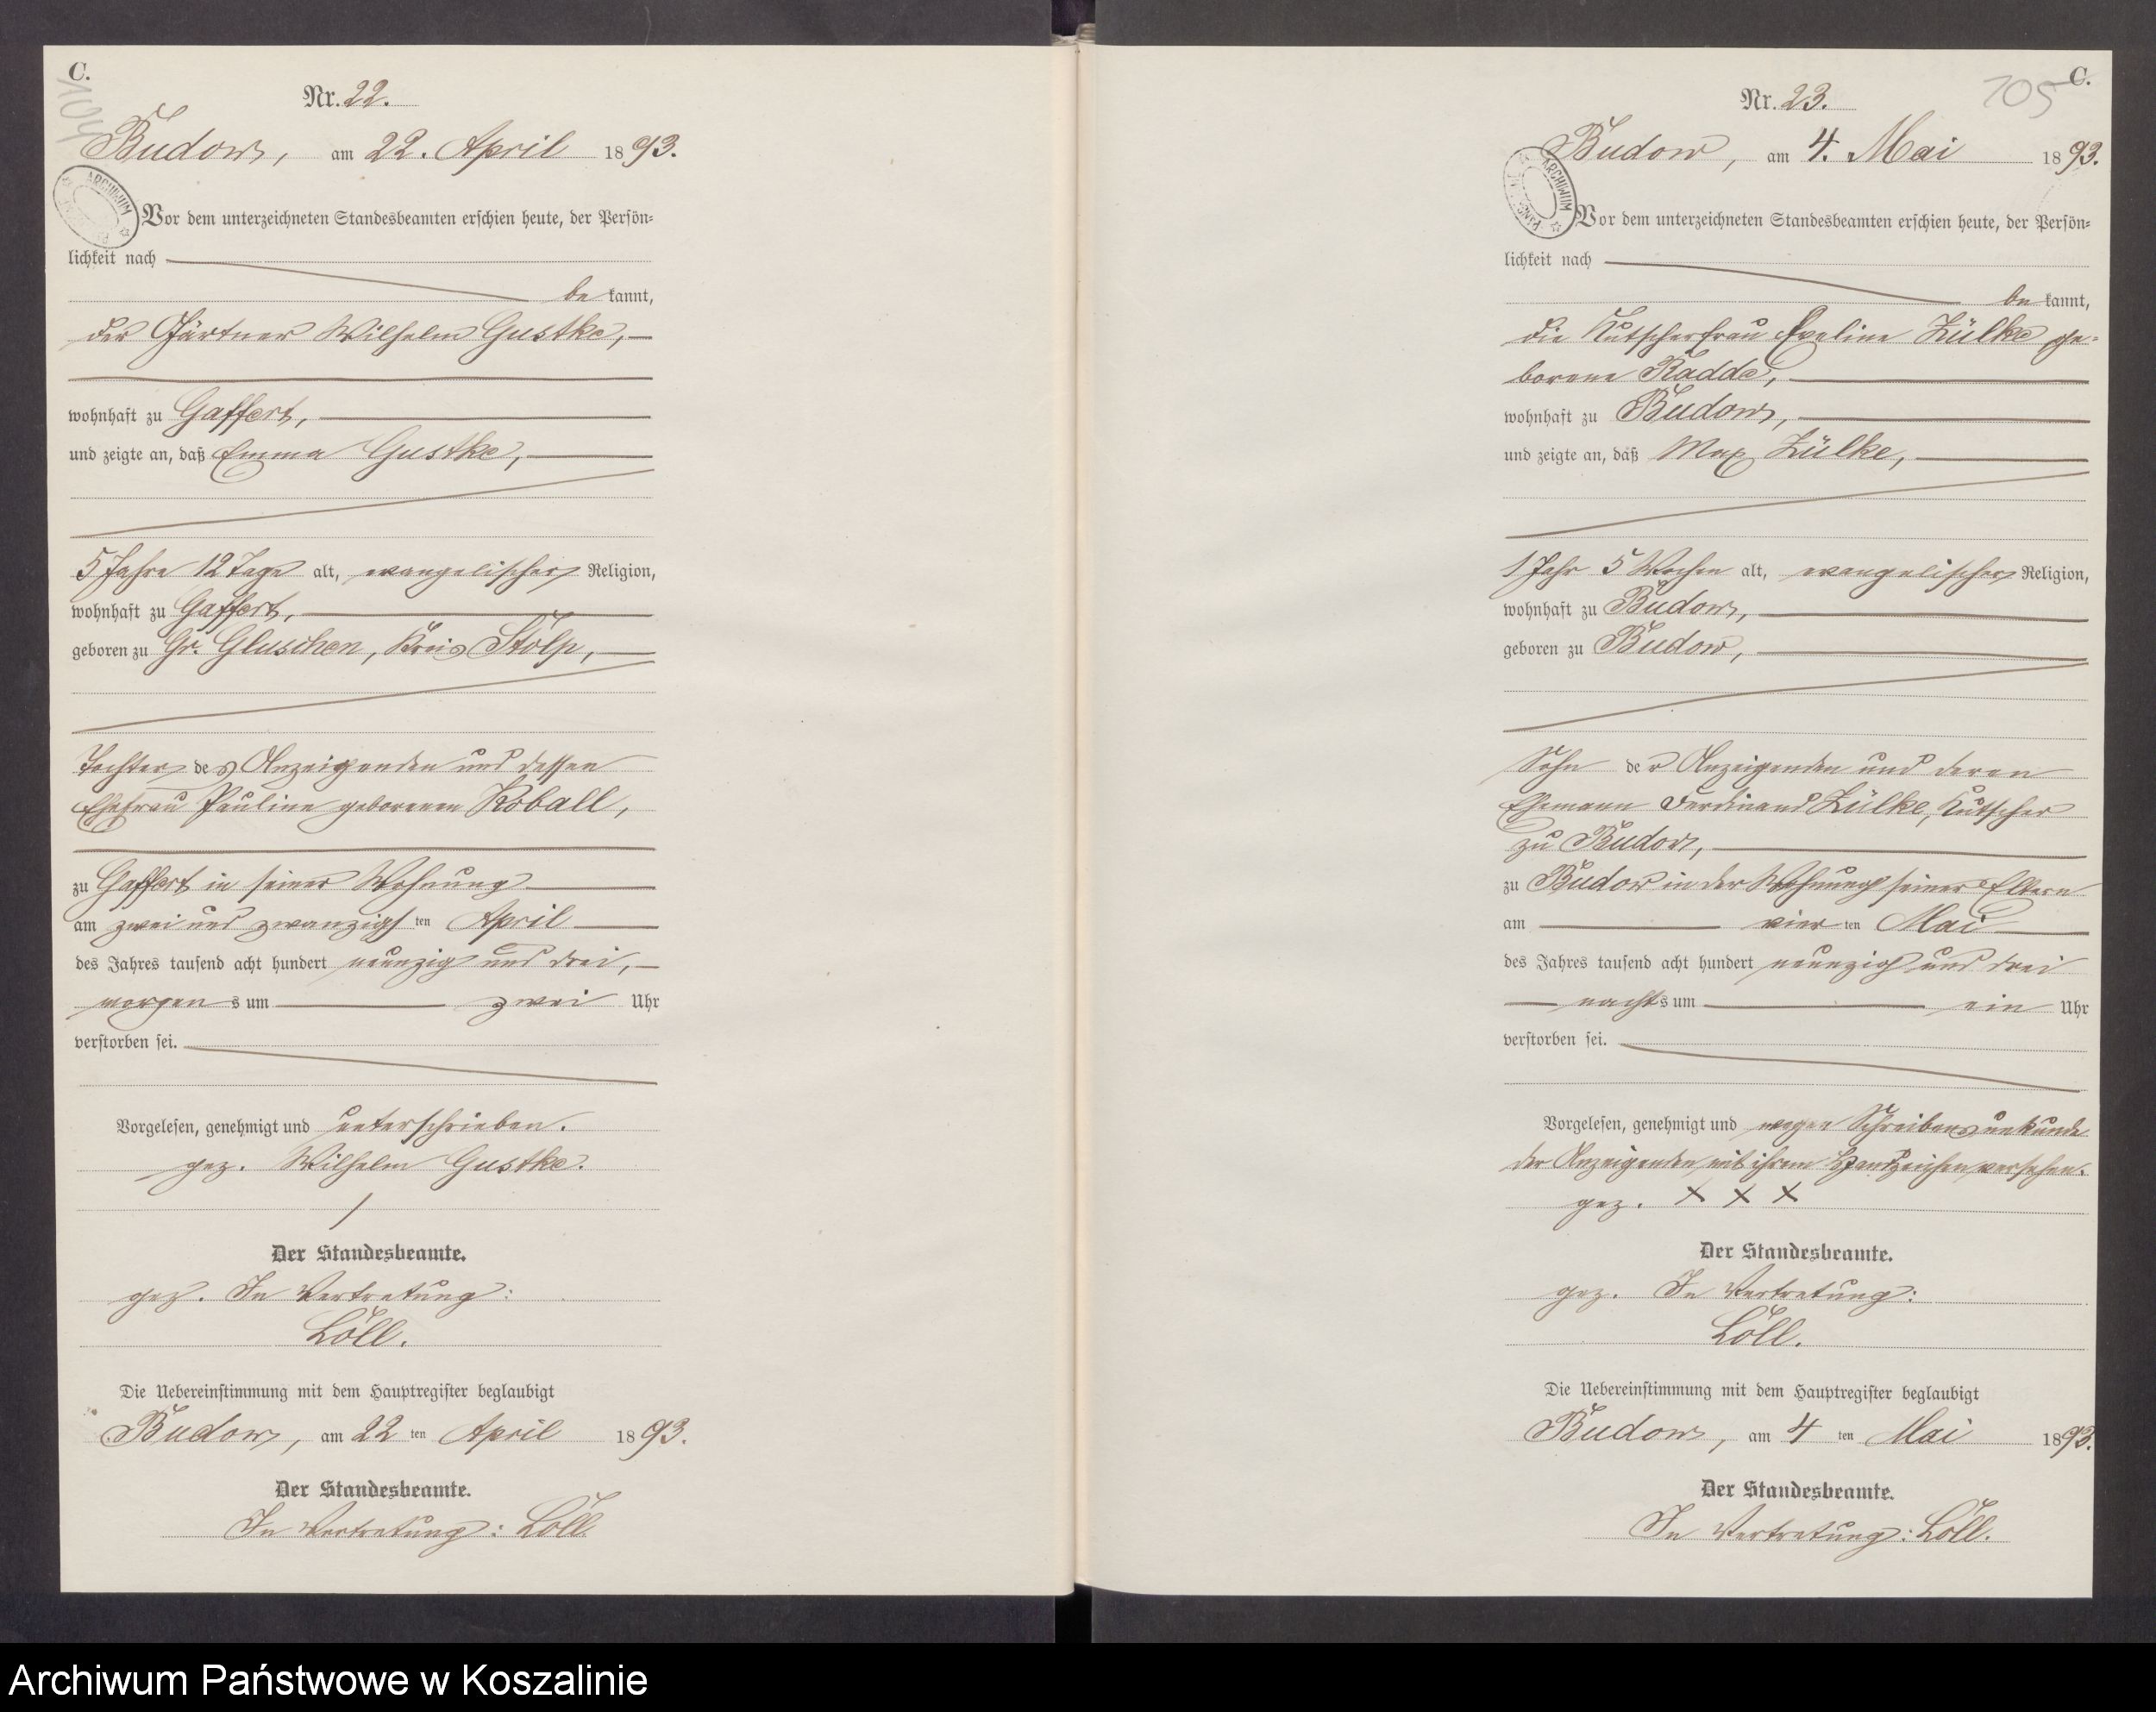 C.
104
Nr. 22.
Budow, am 22. April 1893.
ARCHIWUM
Vor dem unterzeichneten Standesbeamten erschien heute, der Persön-
lichkeit nach
be kannt,
der Gärtner Wilhelm Gustke,
wohnhaft zu Gaffert,
und zeigte an, daß Emma Gustke,
5 Jahre 12 Tage alt, evangelischer Religion,
wohnhaft zu Gaffert,
geboren zu Gr. Gluschen, Kreis Stolp,
Tochter des Anzeigenden und dessen
Ehefrau Pauline geborenen Koball,
zu Gaffert in seiner Wohnung
am zwei und zwanzigsten April
des Jahres tausend acht hundert neunzig und drei,
morgens um zwei Uhr
verstorben sei.
Vorgelesen, genehmigt und unterschrieben.
gez. Wilhelm Gustke.
Der Standesbeamte.
gez. In Vertretung:
Löll.
Die Uebereinstimmung mit dem Hauptregister beglaubigt
Budow, am 22 ten April 1893.
Der Standesbeamte.
In Vertretung: Löll.
C.
105
Nr. 23.
Budow, am 4. Mai 1893.
ARCHIWUM
Vor dem unterzeichneten Standesbeamten erschien heute, der Persön-
lichkeit nach
be kannt,
die Kutscherfrau Eveline Zülke ge-
borene Radde,
wohnhaft zu Budow,
und zeigte an, daß Max Zülke,
1 Jahr 5 Wochen alt, evangelischer Religion,
wohnhaft zu Budow,
geboren zu Budow,
Sohn der Anzeigenden und deren
Ehemann Ferdinand Zülke, Kutscher
zu Budow,
zu Budow in der Wohnung seiner Eltern
am vier ten Mai
des Jahres tausend acht hundert neunzig und drei
nachts um ein Uhr
verstorben sei.
Vorgelesen, genehmigt und wegen Schreibensunkunde
der Anzeigenden mit ihrem Handzeichen versehen.
gez. X X X
Der Standesbeamte.
gez. In Vertretung:
Löll.
Die Uebereinstimmung mit dem Hauptregister beglaubigt
Budow, am 4 ten Mai 1893.
Der Standesbeamte.
In Vertretung: Löll.
Archiwum Państwowe w Koszalinie